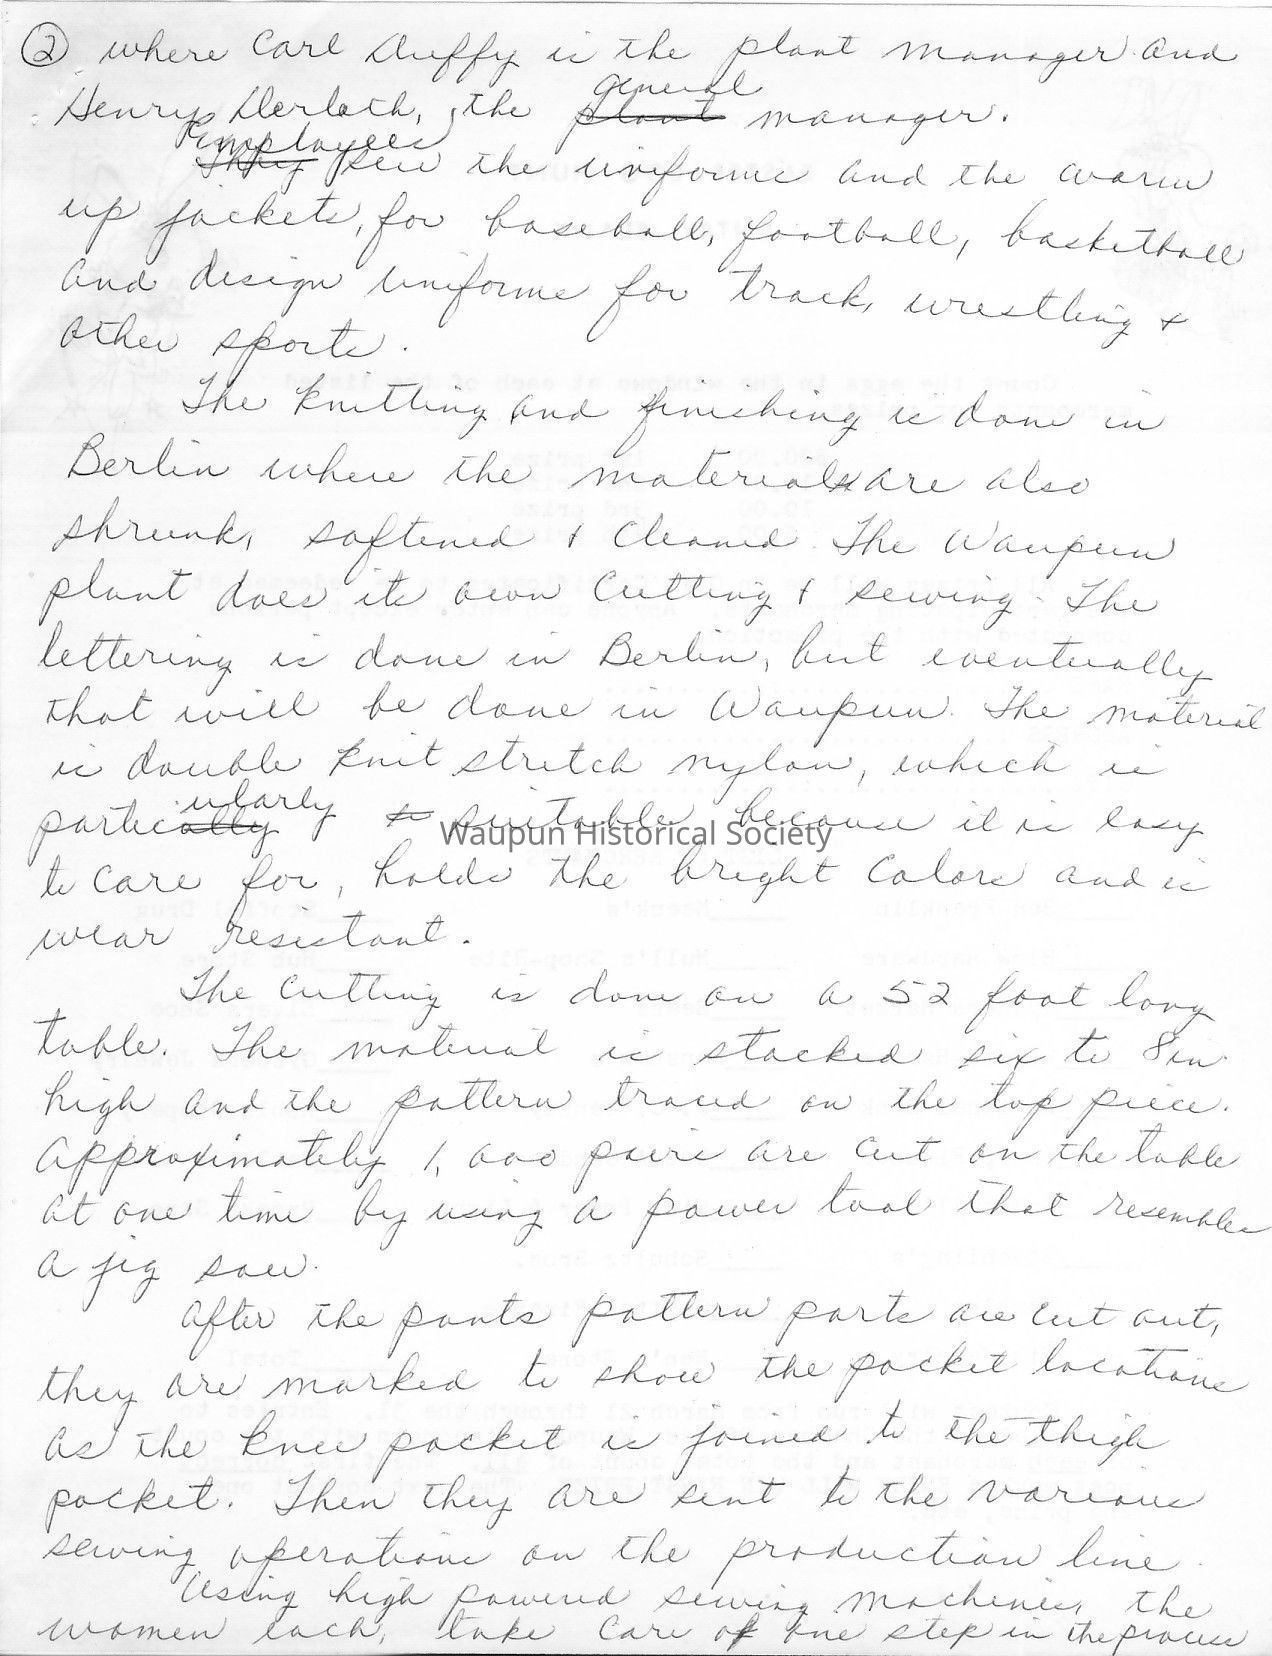 ② where Carl Duffy is the plant manager and
general
Henry Derloth, the plant manager.
Employees
They sew the uniforms and the warm
up jackets, for baseball, football, basketball
and design uniforms for track, wrestling &
other sports.
The knitting and finishing is done in
Berlin where the materials are also
shrunk, softened & cleaned. The Waupun
plant does its own cutting & sewing. The
lettering is done in Berlin, but eventually
that will be done in Waupun. The material
is double knit stretch nylon, which is
ularly
particually suitable because it is easy
Waupun Historical Society
to care for, holds the bright colors and is
wear resistant.
The cutting is done on a 52 foot long
table. The material is stacked six to 8 in.
high and the pattern traced on the top piece.
Approximately 1,000 pairs are cut on the table
at one time by using a power tool that resembles
a jig saw.
After the pants pattern parts are cut out,
they are marked to show the pocket locations
as the knee pocket is joined to the thigh
pocket. Then they are sent to the various
sewing operations on the production line.
Using high powered sewing machines, the
women each, take care of one step in the process